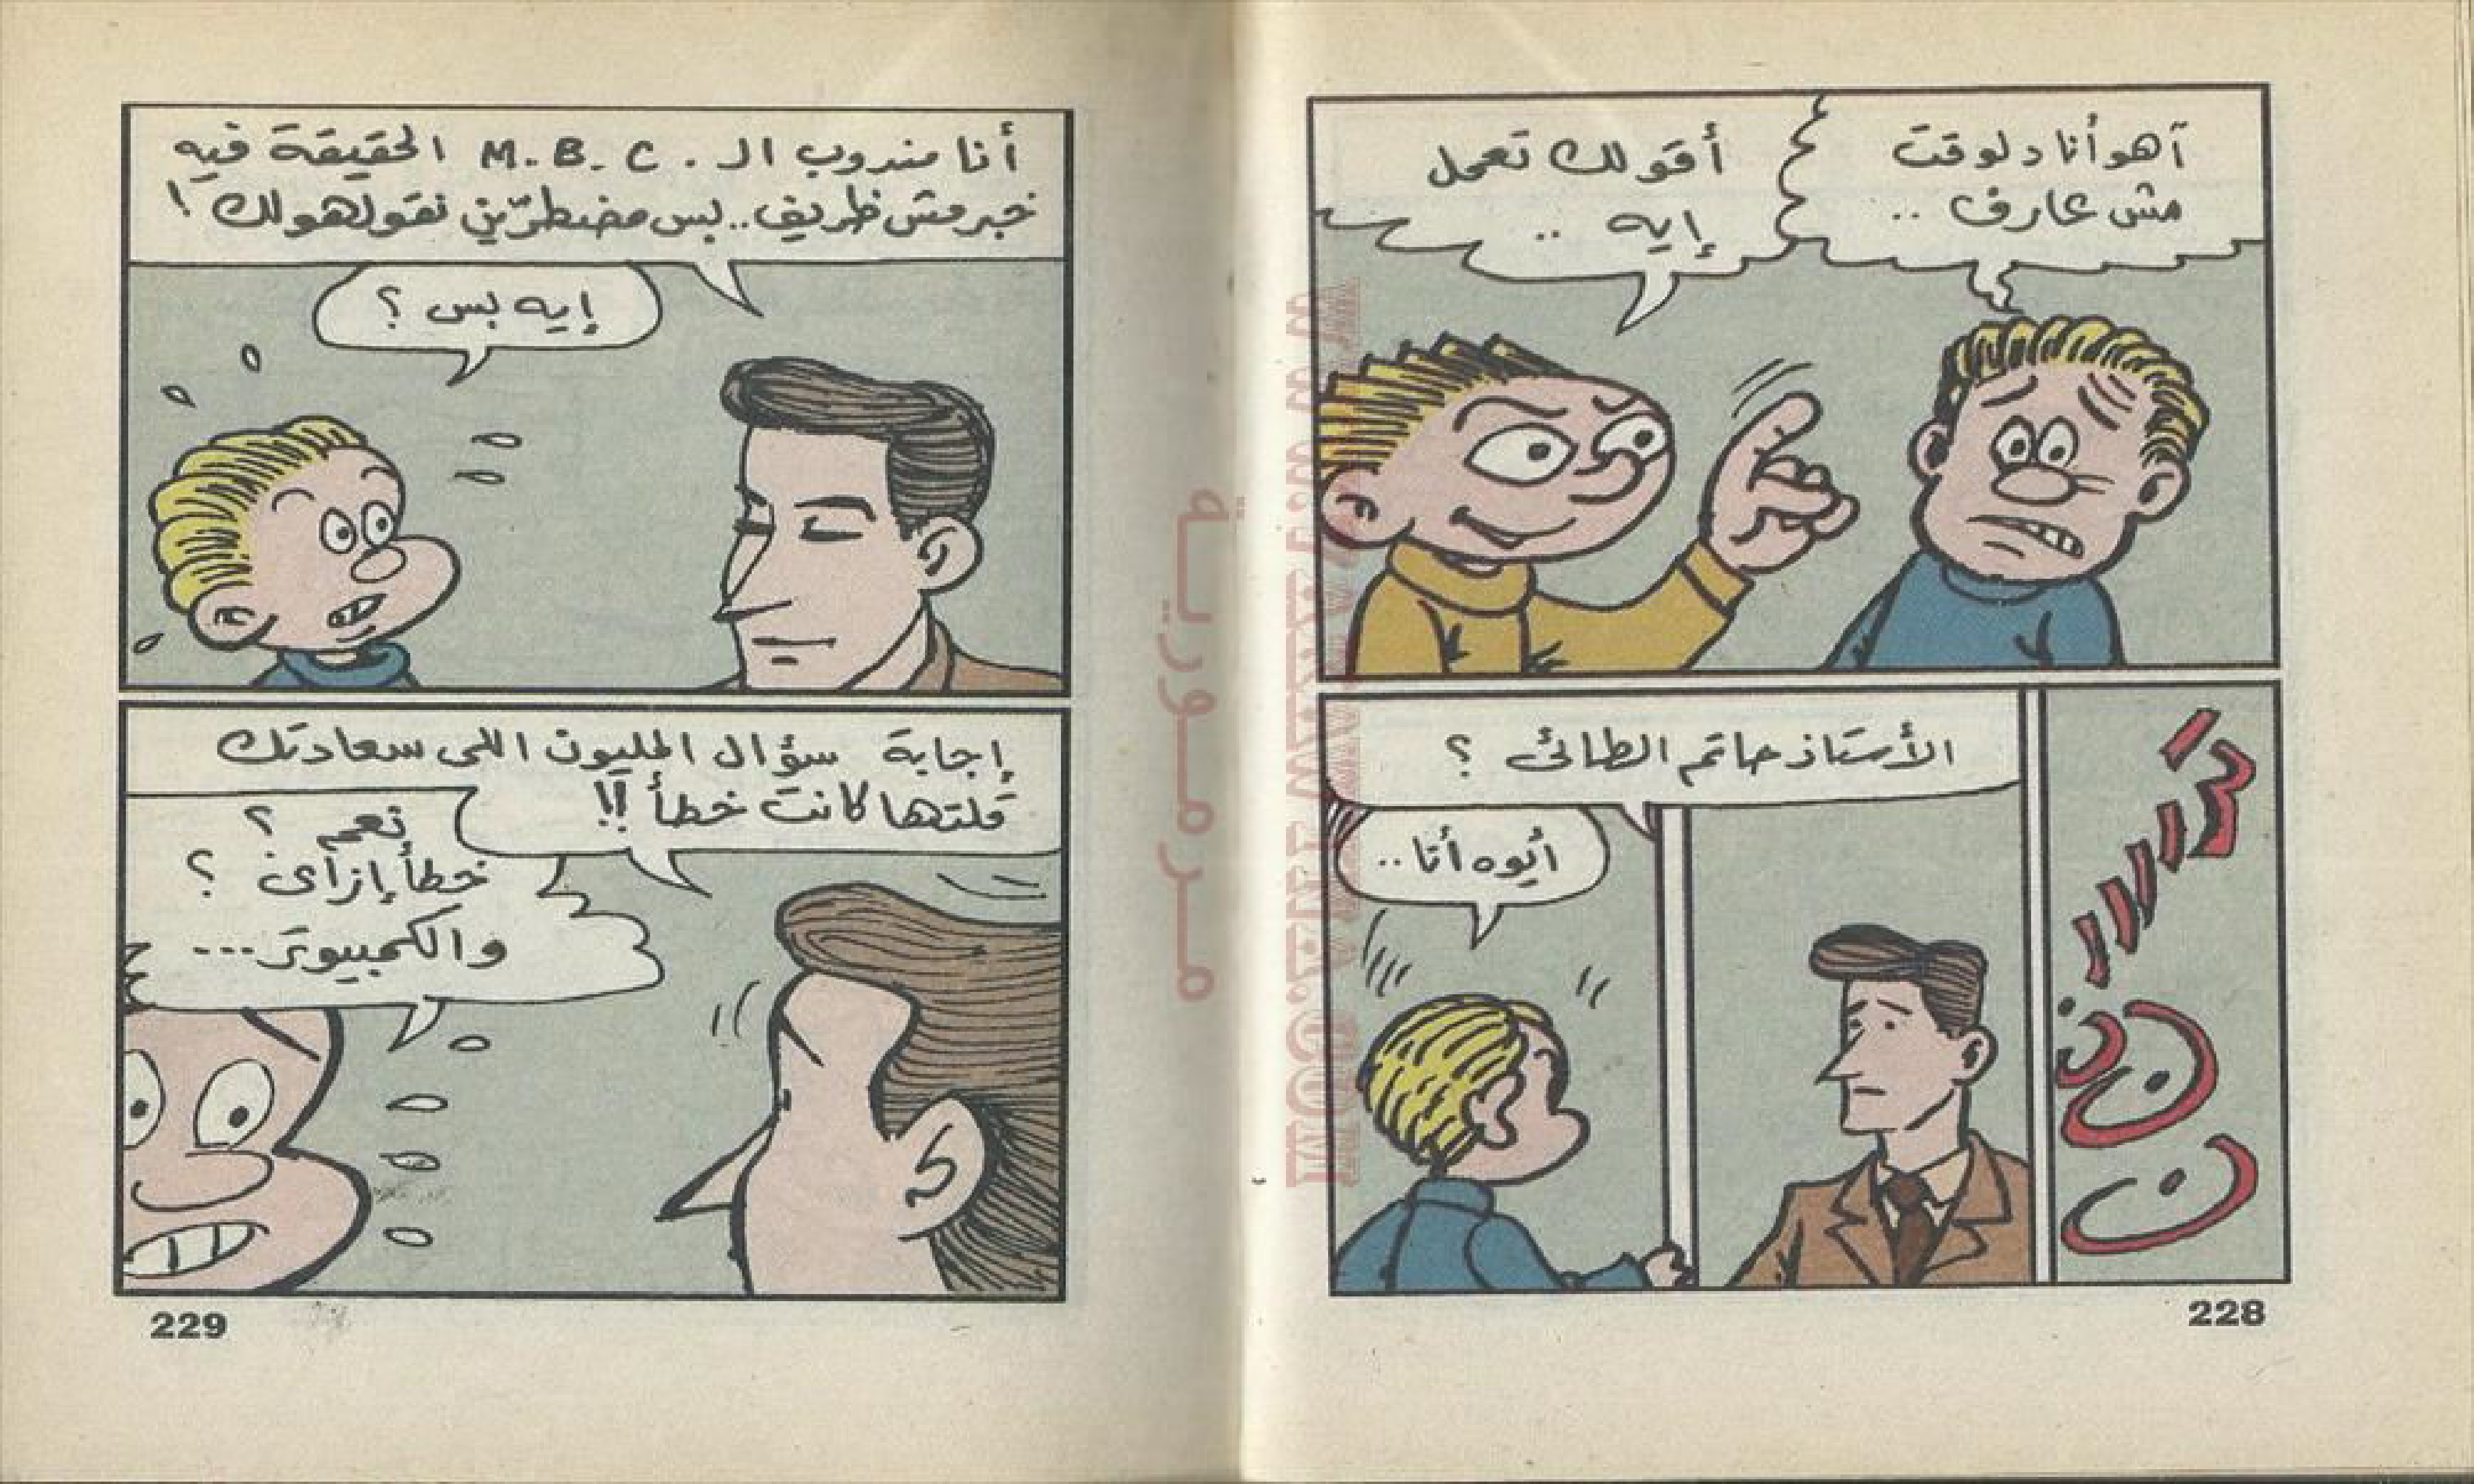 آهو أنا دلوقت
مش عارف ..
أقولك تعمل
إيه ..
ترررررررن
ن
الأستاذ حاتم الطائى ؟
أيوه أنا ..
228
أنا مندوب الـ M.B.C. الحقيقة فيه
خبر مش ظريف.. بس مضطرّين نقولهولك !
إيه بس ؟
إجابة سؤال المليون اللى سعادتك
قلتها كانت خطأ !!
نعم ؟
خطأ إزاى ؟
والكمبيوتر...
229
مرمورية